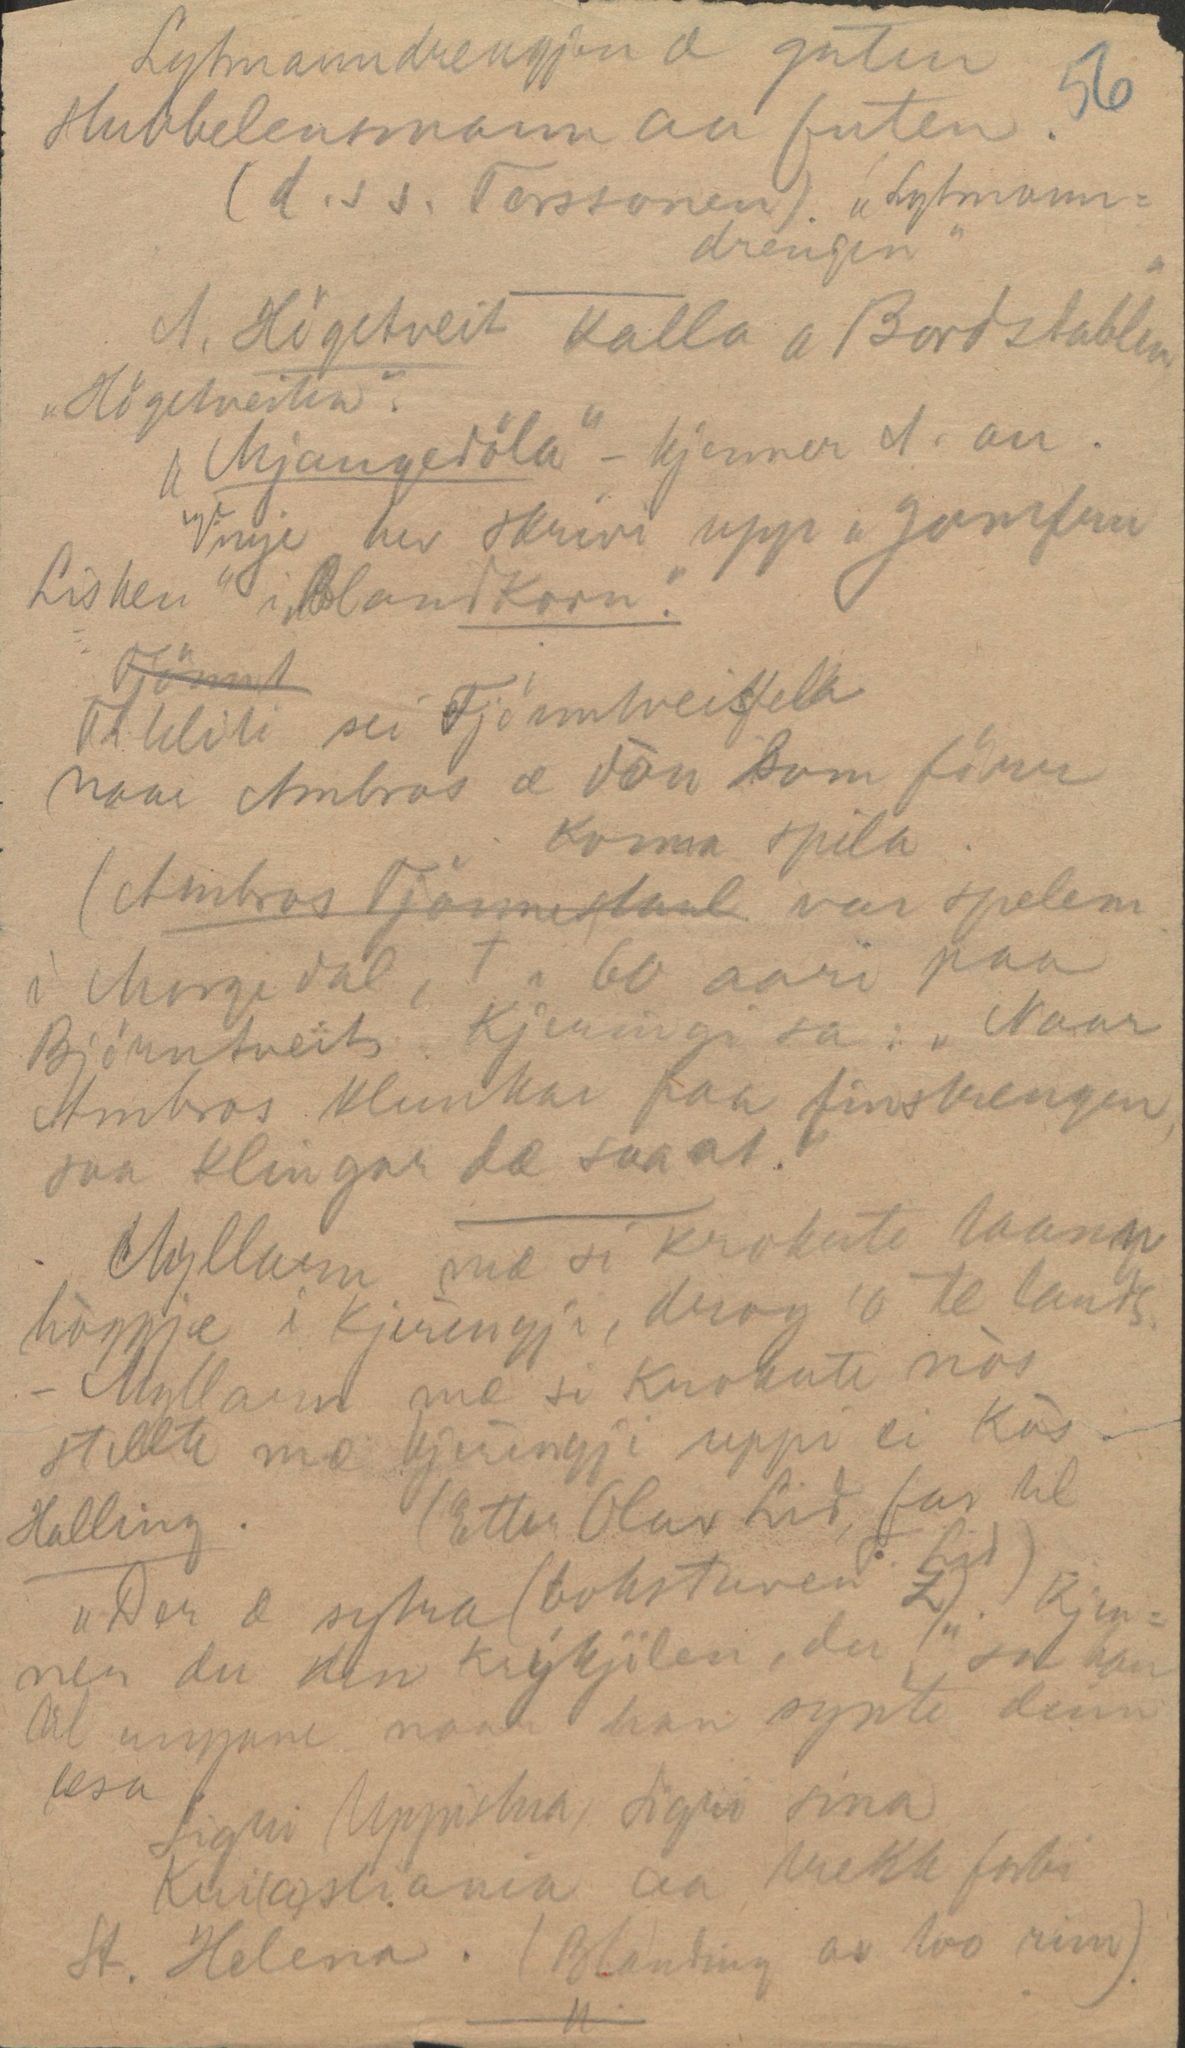 Lytmanndrengjen æ guten
56
stubbelensmann aa futen.
(d.s.s. Torssonen). "Lytmann=
drengen"
A. Högetveit kalla a Bordstablen
"Högetveiten".
"Mjaugedöla" - kjenner A. au.
Vinje hev skrivi upp "Jomfru
Lisken" i "Blandkorn".
Tjönnt
sei Tjönntveit
naar Ambros æ dòu som förer
koma spila.
(Ambros Tjönnestaul var spelem.
i Morgedal, † 60 aari paa
Björntveit. Kjeringi sa: "Naar
Ambros klunkar paa finstrengen,
saa klingar dæ saa at."
Myllaren mæ si krokute haand
höggje i kjeringji, drog 'o te lands.
- Myllaren mæ si krokute nòs
stellte mæ kjeringji uppi ei kòs.
Halling. (Etter Olav Lid, far til
T. Lid)
"Der æ sytra (bokstaven Z). Kjen=
ner du den krykjilen, du!" sa han
til ungane naar han synte deim
lesa
Sigri Uppistua, Sigri sina
Kri(a)stiania aa trekk forbi
St. Helena. (Blanding av two rim).